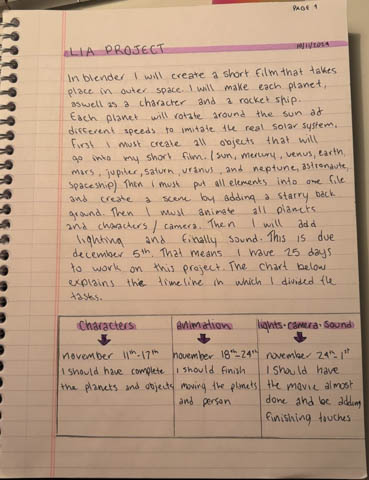 PAGE 1
LIA PROJECT
In blender I will create a short film that takes
place in outer space. I will make each planet,
aswell as a character and a rocket ship.
Each planet will rotate around the sun at
different speeds to imitate the real solar system.
First I must create all objects that will
go into my short film. (sun, mercury, venus, earth,
mars, jupiter, saturn, uranus, and neptune, astronaute,
spaceship) Then I must put all elements into one file
and create a scene by adding a starry back
ground. Then I must animate all planets
and characters / camera. Then I will add
lighting and finally sound. This is due
december 5th. That means I have 25 days
to work on this project. The chart below
explains the timeline in which I divided the
tasks.
Characters
november 11th-17th
I should have complete
the planets and objects
animation
november 18th-24th
I should finish
moving the planets
and person
lights · camera · sound
november 24th-1st
I should have
the movie almost
done and be adding
finishing touches